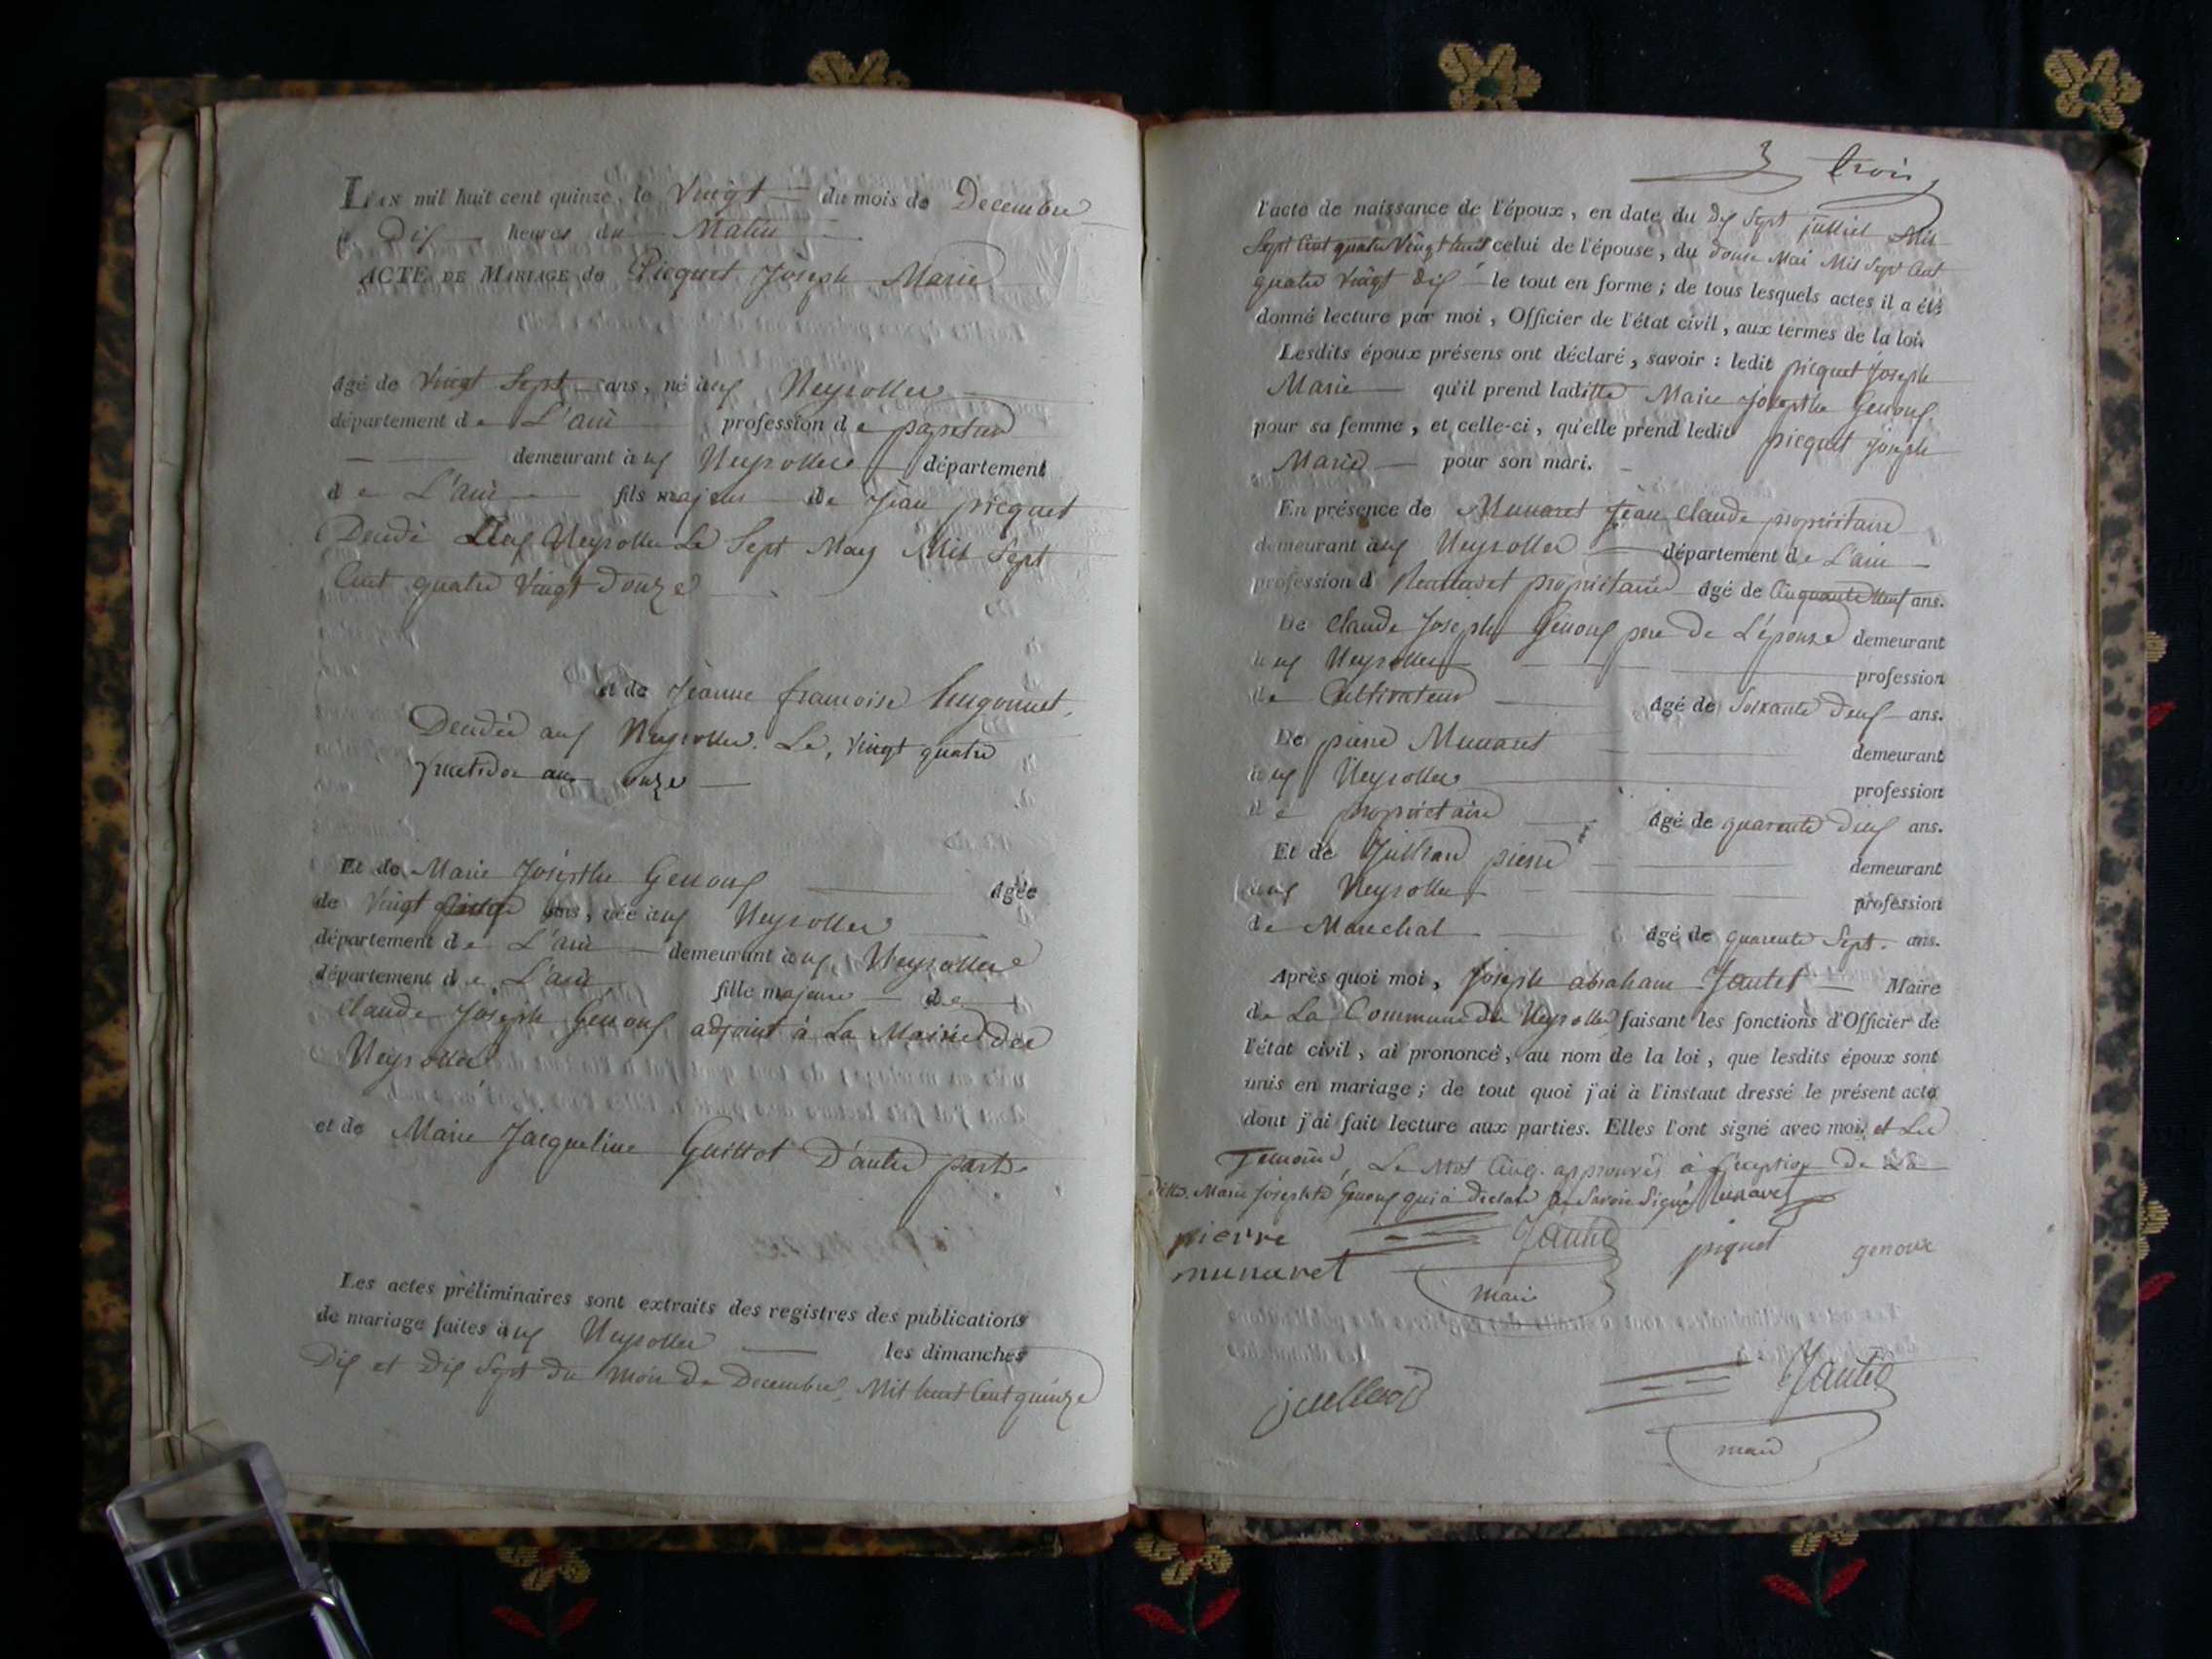 L'AN mil huit cent quinze, le Vingt du mois de Decembre
à Dix heures du Matin
ACTE DE MARIAGE de Picquet Joseph Marie
âgé de Vingt Sept ans, né à aux Neyrolles
département de L'ain profession de papetier
demeurant à aux Neyrolles département
de L'ain fils majeur de Jean picquet
Décédé aux Neyrolles Le Sept May Mil Sept
Cent quatre Vingt Douze
et de Jeanne francoise hugonnet,
Décédée aux Neyrolles. Le, Vingt quatre
fructidor an onze
Et de Marie Josephte Genoux âgée
de Vingt ans, née à aux Neyrolles
département de L'ain demeurant à aux Neyrolles
département de L'ain fille majeure de
Claude Joseph Genoux adjoint à La Mairie des
Neyrolles
et de Marie Jacqueline Guillot D'autre part
Les actes préliminaires sont extraits des registres des publications
de mariage faites à aux Neyrolles les dimanches
Dix et Dix Sept du mois de Decembre, Mil huit Cent quinze
3 trois
l'acte de naissance de l'époux, en date du dix Sept julliet Mil
Sept Cent quatre Vingt huit celui de l'épouse, du douze Mai Mil Sept Cent
quatre Vingt dix le tout en forme ; de tous lesquels actes il a été
donné lecture par moi, Officier de l'état civil, aux termes de la loi.
Lesdits époux présens ont déclaré, savoir : ledit picquet Joseph
Marie qu'il prend laditte Marie Josephte Genoux
pour sa femme, et celle-ci, qu'elle prend ledit picquet Joseph
Marie pour son mari.
En présence de Munaret Jean Claude propriétaire
demeurant à aux Neyrolles département de L'ain
profession d propriétaire âgé de Cinquante Neuf ans.
De Claude Joseph Genoux pere de L'épouse demeurant
à aux Neyrolles profession
de Cultivateur âgé de Soixante deux ans.
De pierre Munaret demeurant
à aux Neyrolles profession
de propriétaire âgé de quarente deux ans.
Et de Julliard pierre demeurant
à aux Neyrolles profession
de Marechal âgé de quarente Sept. ans.
Après quoi moi, Joseph abraham Jantet Maire
de La Commune des Neyrolles faisant les fonctions d'Officier de
l'état civil, ai prononcé, au nom de la loi, que lesdits époux sont
unis en mariage ; de tout quoi j'ai à l'instant dressé le présent acte
dont j'ai fait lecture aux parties. Elles l'ont signé avec moi. et Les
Temoins, Le Mot Cinq. approuvés à L'exception de La
ditte. Marie Josephte Genoux qui à déclaré ne Savoir Signé munaret
pierre Jantet piquet genoux
munaret
maire
juilliard Jantet
maire